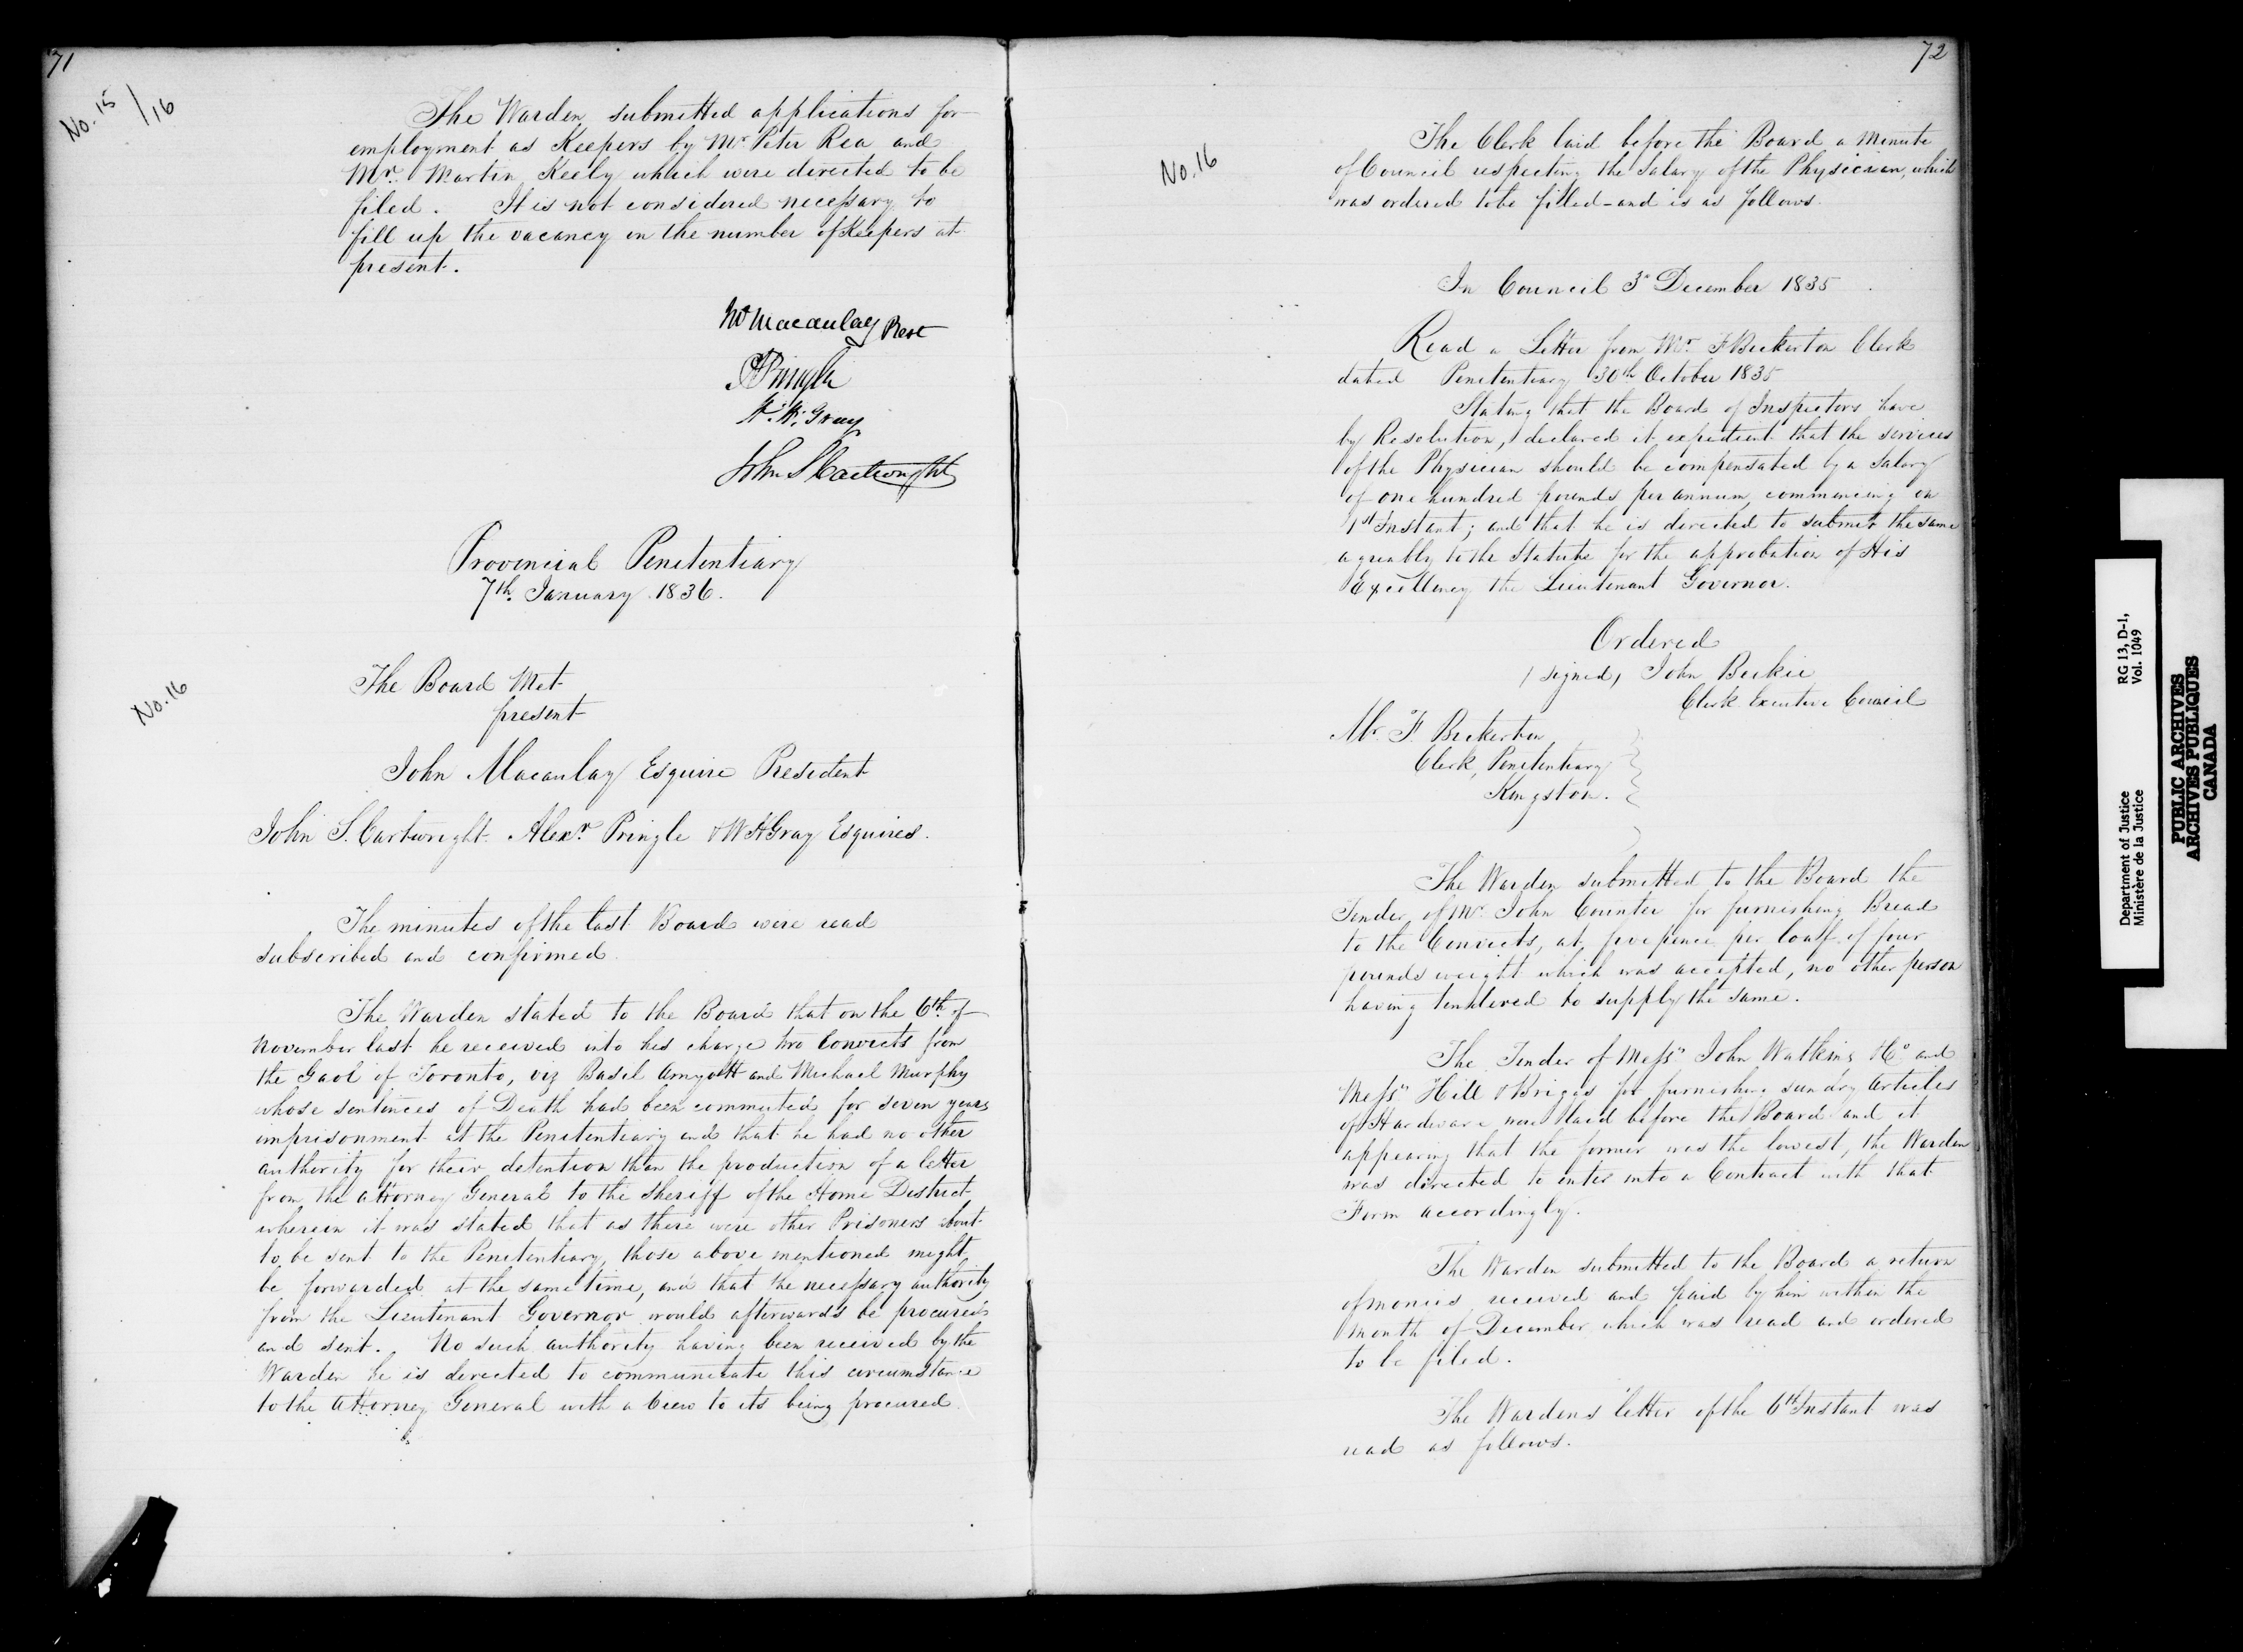 71
No. 15/16
The Warden submitted applications for
employment as Keepers by Mr Peter Rea and
Mr. Martin Keely which were directed to be
filed. It is not considered necessary to
fill up the vacancy in the number of Keepers at
present.
Jno Macaulay Prest
A Pringle
W. H. Gray
John S Cartwright
Provincial Penitentiary
7th January 1836.
No. 16
The Board Met
present
John Macaulay Esquire President
John S. Cartwright Alexr. Pringle & W H Gray Esquires.
The minutes of the last Board were read
subscribed and confirmed.
The Warden stated to the Board that on the 6th of
November last he received into his charge two Convicts from
the Gaol of Toronto, viz Basil Amyott and Michael Murphy
whose sentences of Death had been commuted for seven years
imprisonment at the Penitentiary and that he had no other
authority for their detention than the production of a letter
from the Attorney General to the Sheriff of the Home District
wherein it was stated that as there were other Prisoners about
to be sent to the Penitentiary, those above mentioned might
be forwarded at the same time, and that the necessary authority
from the Lieutenant Governor would afterwards be procured
and sent. No such authority having been received by the
Warden he is directed to communicate this circumstance
to the Attorney General with a view to its being procured.
72
No. 16
The Clerk laid before the Board a Minute
of Council respecting the Salary of the Physician, which
was ordered to be filled - and is as follows.
In Council 3d December 1835
Read a Letter from Mr. F Bickerton Clerk
dated Penitentiary 30th October 1835
Stating that the Board of Inspectors have
by Resolution, declared it expedient that the services
of the Physician should be compensated by a Salary
of one hundred pounds per annum, commencing on
1st Instant; and that he is directed to submit the same
agreably to the Statute for the approbation of His
Excellency the Lieutenant Governor.
Ordered
(signed) John Beikie
Clerk Executive Council
Mr. F. Bickerton
Clerk, Penitentiary
Kingston.
The Warden submitted to the Board the
Tender of Mr. John Counter for furnishing Bread
to the Convicts, at five pence per loaf of four
pounds weight which was accepted, no other person
having tendered to supply the same.
The Tender of Messrs John Watkins & Co. and
Messrs Hill & Briggs for furnishing sundry articles
of Hardware were laid before the Board and it
appearing that the former was the lowest, the Warden
was directed to enter into a Contract with that
Firm accordingly.
The Warden submitted to the Board a return
of monies received and paid by him within the
month of December which was read and ordered
to be filed.
The Wardens letter of the 6th Instant was
read as follows.
Department of Justice RG 13, D-1,
Ministère de la Justice Vol. 1049
PUBLIC ARCHIVES
ARCHIVES PUBLIQUES
CANADA